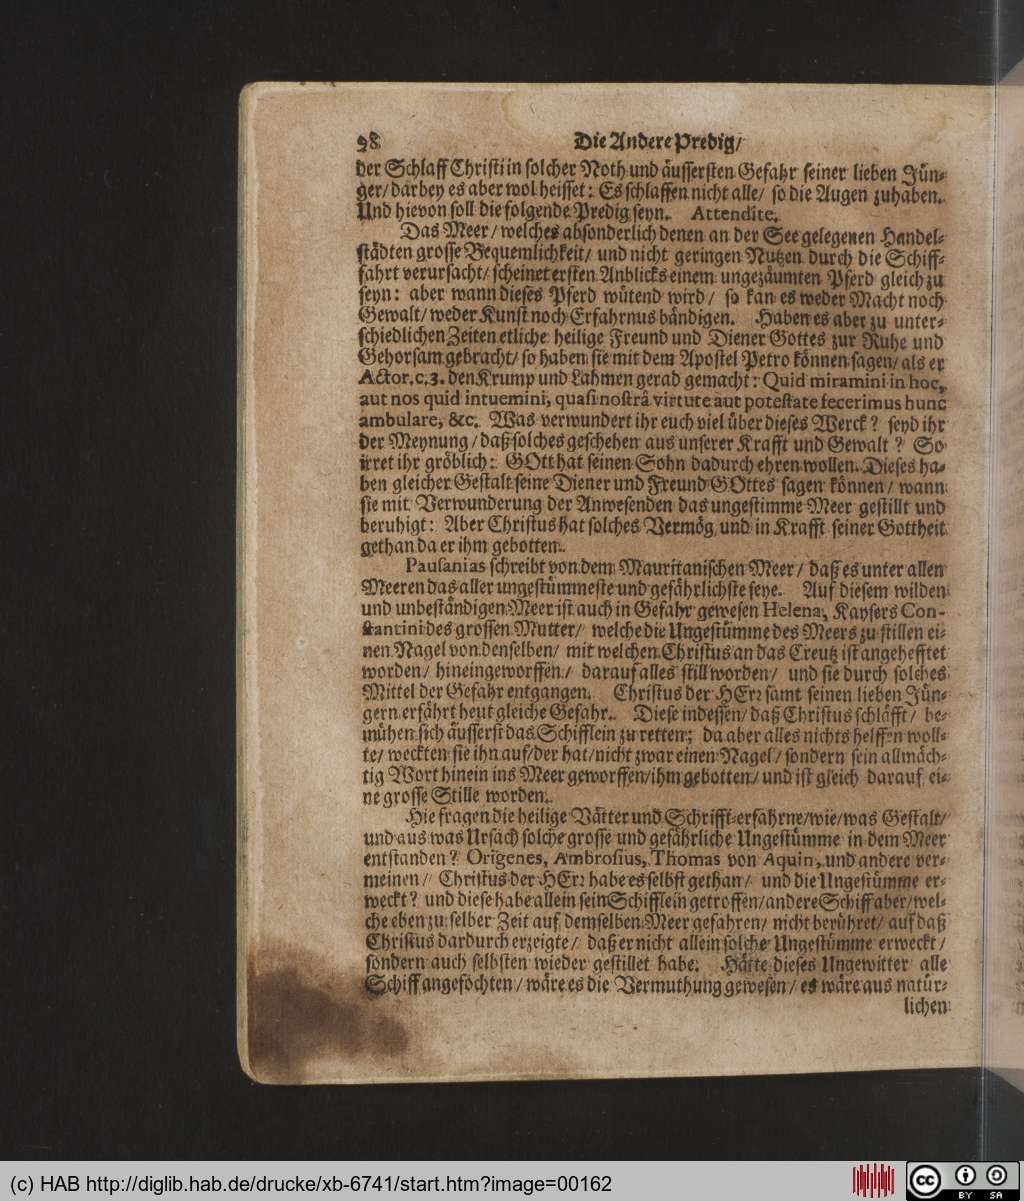 98 Die Andere Predig/
der Schlaff Christi in solcher Noth und äussersten Gefahr seiner lieben Jün-
ger/ darbey es aber wol heisset: Es schlaffen nicht alle/ so die Augen zuhaben.
Und hievon soll die folgende Predig seyn. Attendite.
Das Meer/ welches absonderlich denen an der See gelegenen Handel-
städten grosse Bequemlichkeit/ und nicht geringen Nutzen durch die Schiff-
fahrt verursacht/ scheinet ersten Anblicks einem ungezäumten Pferd gleich zu
seyn: aber wann dieses Pferd wütend wird/ so kan es weder Macht noch
Gewalt/ weder Kunst noch Erfahrnus bändigen. Haben es aber zu unter-
schiedlichen Zeiten etliche heilige Freund und Diener Gottes zur Ruhe und
Gehorsam gebracht/ so haben sie mit dem Apostel Petro können sagen/ als er
Actor. c. 3. den Krump und Lahmen gerad gemacht: Quid miramini in hoc,
aut nos quid intuemini, quasi nostrâ virtute aut potestate fecerimus hunc
ambulare, &c. Was verwundert ihr euch viel über dieses Werck? seyd ihr
der Meynung/ daß solches geschehen aus unserer Krafft und Gewalt? So
irret ihr gröblich: GOtt hat seinen Sohn dadurch ehren wollen. Dieses ha-
ben gleicher Gestalt seine Diener und Freund GOttes sagen können/ wann
sie mit Verwunderung der Anwesenden das ungestimme Meer gestillt und
beruhigt: Aber Christus hat solches Vermög und in Krafft seiner Gottheit
gethan da er ihm gebotten.
Pausanias schreibt von dem Mauritanischen Meer/ daß es unter allen
Meeren das aller ungestümmeste und gefährlichste seye. Auf diesem wilden
und unbeständigen Meer ist auch in Gefahr gewesen Helena, Kaysers Con-
stantini des grossen Mutter/ welche die Ungestümme des Meers zu stillen ei-
nen Nagel von denselben/ mit welchen Christus an das Creutz ist angehefftet
worden/ hineingeworffen/ darauf alles still worden/ und sie durch solches
Mittel der Gefahr entgangen. Christus der HErr samt seinen lieben Jün-
gern erfährt heut gleiche Gefahr. Diese indessen/ daß Christus schläfft/ be-
mühen sich äusserst das Schifflein zu retten; da aber alles nichts helffen woll-
te/ weckten sie ihn auf/ der hat/ nicht zwar einen Nagel/ sondern sein allmäch-
tig Wort hinein ins Meer geworffen/ ihm gebotten/ und ist gleich darauf ei-
ne grosse Stille worden.
Hie fragen die heilige Vätter und Schrifft-erfahrne/ wie/ was Gestalt/
und aus was Ursach solche grosse und gefährliche Ungestümme in dem Meer
entstanden? Origenes, Ambrosius, Thomas von Aquin, und andere ver-
meinen/ Christus der HErr habe es selbst gethan/ und die Ungestümme er-
weckt? und diese habe allein sein Schifflein getroffen/ andere Schiff aber/ wel-
che eben zu selber Zeit auf demselben Meer gefahren/ nicht berühret/ auf daß
Christus dardurch erzeigte/ daß er nicht allein solche Ungestümme erweckt/
sondern auch selbsten wieder gestillet habe. Hätte dieses Ungewitter alle
Schiff angefochten/ wäre es die Vermuthung gewesen/ es wäre aus natür-
lichen
(c) HAB http://diglib.hab.de/drucke/xb-6741/start.htm?image=00162
cc BY SA